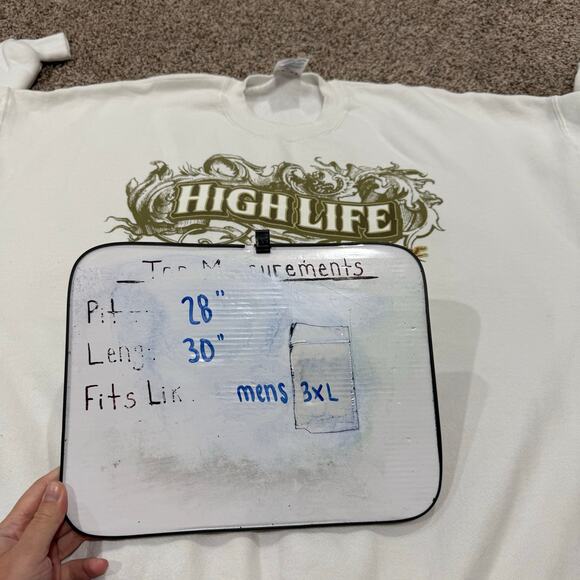 HIGH LIFE
Measurements
Pit 28"
Leng 30"
Fits Lik mens 3XL